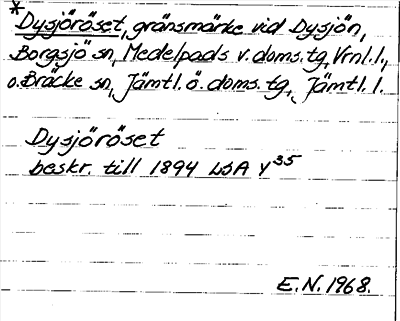 *
Dysjöröset, gränsmärke vid Dysjön,
Borgsjö sn, Medelpads v. doms. tg, Vrnl. l.,
o. Bräcke sn, Jämtl. ö. doms. tg, Jämtl. l.
Dysjöröset
beskr. till 1894 LSA Y35
E.N. 1968.